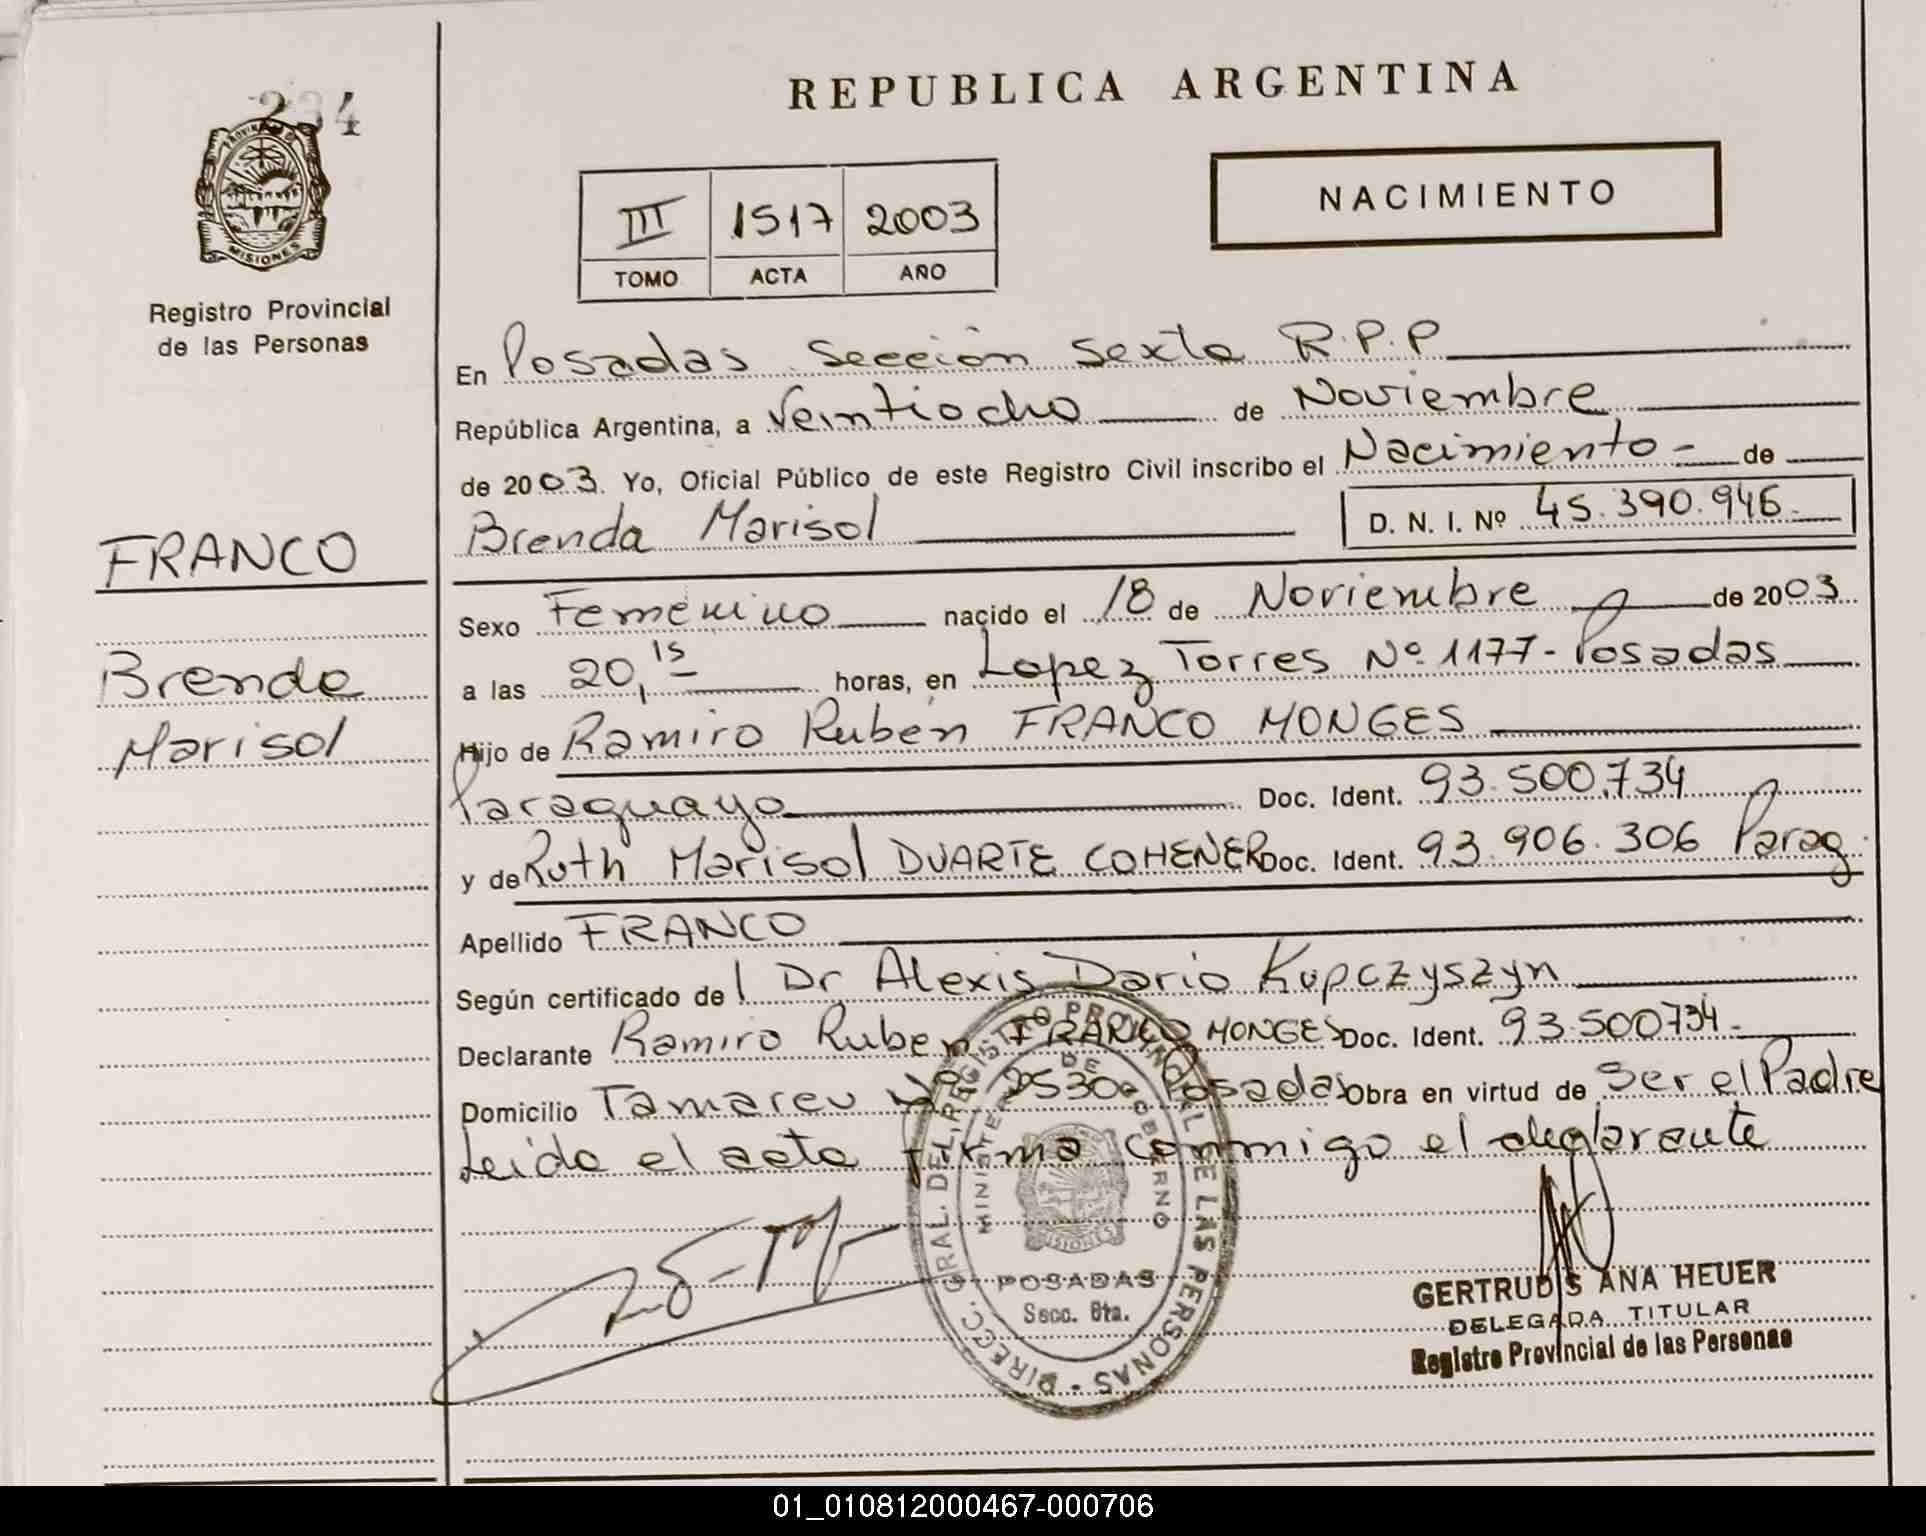 234
PROVINCIA DE
MISIONES
Registro Provincial
de las Personas
FRANCO
Brenda
Marisol
REPUBLICA ARGENTINA
III 1517 2003
TOMO ACTA AÑO
NACIMIENTO
En Posadas Sección Sexta R.P.P
República Argentina, a Veintiocho de Noviembre
de 2003. Yo, Oficial Público de este Registro Civil inscribo el Nacimiento - de
Brenda Marisol D. N. I. Nº 45.390.946.
Sexo Femenino nacido el 18 de Noviembre de 2003
a las 20,15 horas, en Lopez Torres Nº 1177 - Posadas
Hijo de Ramiro Rubén FRANCO MONGES
Paraguayo Doc. Ident. 93.500.734
y de Ruth Marisol DUARTE COHENER Doc. Ident. 93.906.306 Parag.
Apellido FRANCO
Según certificado de l Dr Alexis Dario Kupczyszyn
Declarante Ramiro Ruben FRANCO MONGES Doc. Ident. 93.500734
Domicilio Tamareu Nº 2530 Posadas Obra en virtud de Ser el Padre
Leida el acta firma conmigo el declarante
DIRECC. GRAL. DEL REGISTRO PROVINCIAL DE LAS PERSONAS -
MINISTERIO DE GOBIERNO
MISIONES
POSADAS
Secc. 6ta.
GERTRUDIS ANA HEUER
DELEGADA TITULAR
Registro Provincial de las Personas
01_010812000467-000706